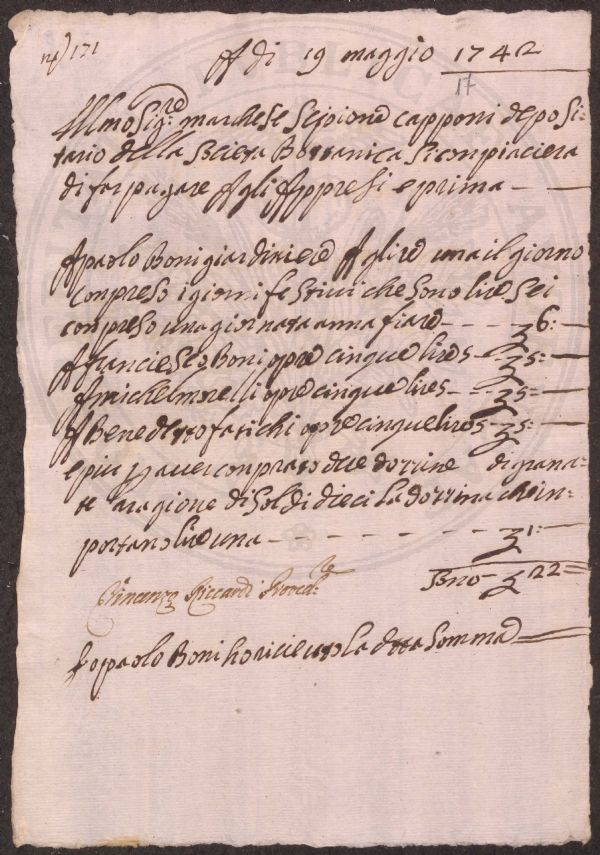 nº) 131
A di 19 maggio 1742
17
Illmo Sigre: marchese Scipione capponi deposi-
tario della Societa Bottanica Si conpiaciera
di far pagare Agli Appresi e prima — —
A paolo Boni giardiniere A lire una il giorno
Conpreso i giorni festiui che sono lire sei
conpreso una giornata annafiare - - - - £ 6: —
A franciesco Boni opre cinque lire 5 - £ 5: —
A michel morelli opre cinque lire 5 - - - £ 5: —
A Benedetto fatichi opre cinque lire 5 - £ 5: —
e piu p auer conprato due dozzine di grana-
te a ragione di Soldi dieci la dozzina che in-
portano lire una - - - - - - - - - £ 1: —
Sono £ 22 =
Vincenzo Riccardi Provre
Io paolo Boni ho riceuuto la detta Somma